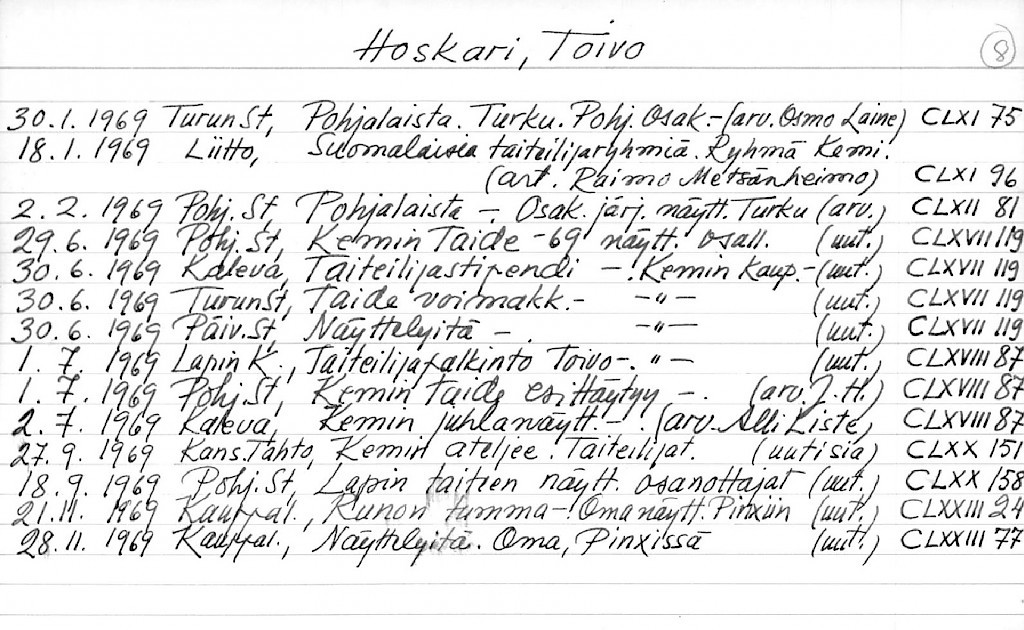 Hoskari, Toivo 8
30.1.1969 Turun St, Pohjalaista. Turku. Pohj. Osak.- (arv. Osmo Laine) CLXI 75
18.1.1969 Liitto, Suomalaisia taiteilijaryhmiä. Ryhmä Kemi.
(art. Raimo Metsänheimo) CLXI 96
2.2.1969 Pohj.St, Pohjalaista -. Osak. järj. näytt. Turku (arv.) CLXII 81
29.6.1969 Pohj.St, Kemin Taide -69 näytt. osall. (uut.) CLXVII 119
30.6.1969 Kaleva, Taiteilijastipendi -. Kemin kaup.- (uut.) CLXVII 119
30.6.1969 Turun St, Taide voimakk.- -"- (uut.) CLXVII 119
30.6.1969 Päiv.St, Näyttelyitä -. -"- (uut.) CLXVII 119
1.7.1969 Lapin K., Taiteilijapalkinto Toivo-. "- (uut.) CLXVIII 87
1.7.1969 Pohj.St, Kemin Taide esittäytyy -. (arv. J.H.) CLXVIII 87
2.7.1969 Kaleva, Kemin juhlanäytt.-. (arv. Alli Liste) CLXVIII 87
27.9.1969 Kans.Tahto, Kemin ateljee. Taiteilijat. (uutisia) CLXX 151
18.9.1969 Pohj.St, Lapin taiteen näytt. osanottajat (uut.) CLXX 158
21.11.1969 Kauppal., Runon tumma-. Oma näytt. Pinxiin (uut.) CLXXIII 24
28.11.1969 Kauppal., Näyttelyitä. Oma, Pinxissä (uut.) CLXXIII 77